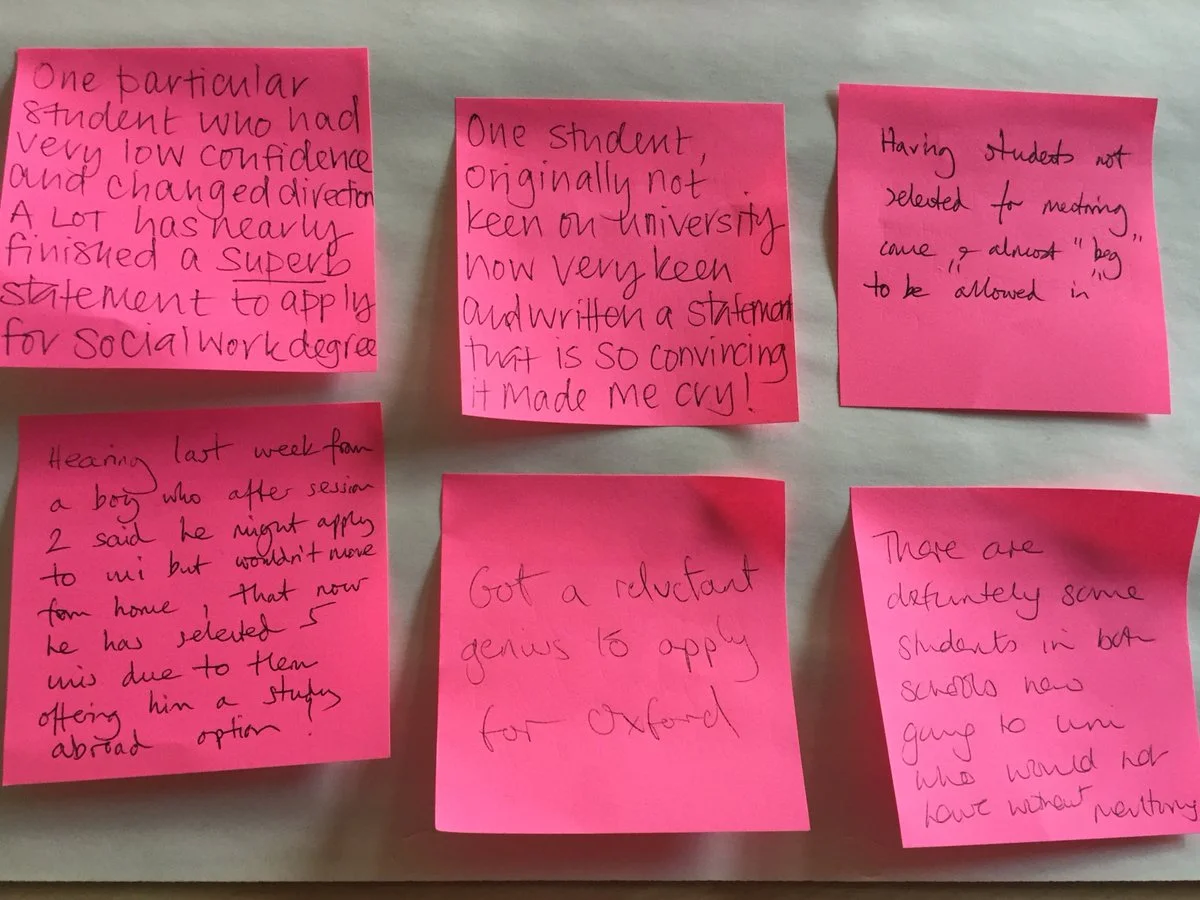 One particular
student who had
very low confidence
and changed direction
A LOT has nearly
finished a superb
statement to apply
for social work degree
One student,
originally not
keen on university
now very keen
and written a statement
that is so convincing
it made me cry!
Having students not
selected for mentoring
come & almost "beg"
to be "allowed in"
Hearing last week from
a boy who after session
2 said he might apply
to uni but wouldn't move
from home, that now
he has selected 5
unis due to them
offering him a study
abroad option!
Got a reluctant
genius to apply
for Oxford
There are
definitely some
students in both
schools now
going to uni
who would not
have without mentoring